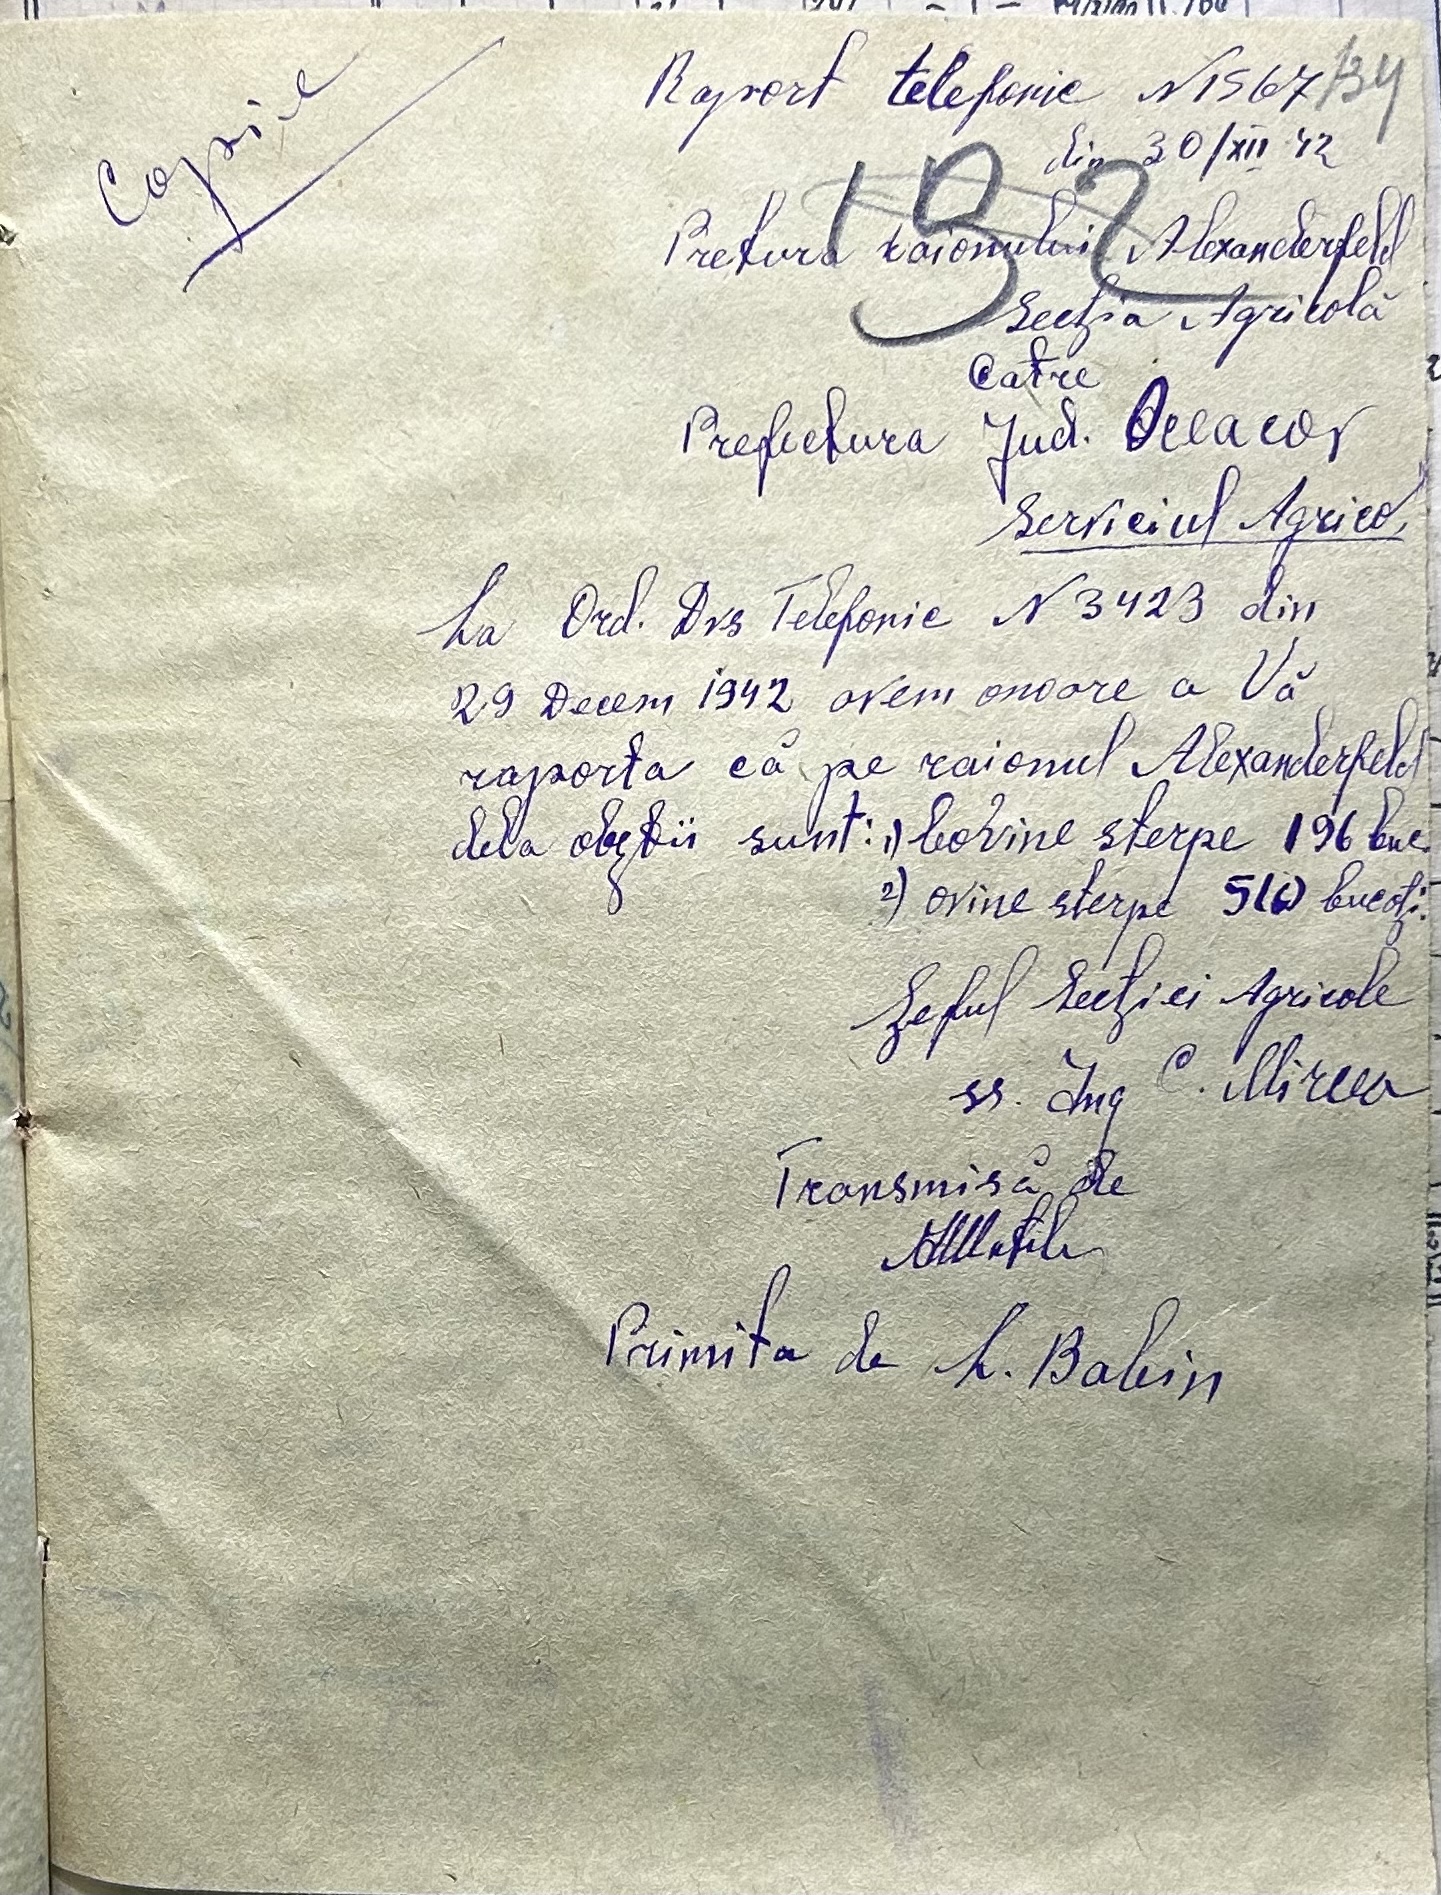 Copie
Raport telefonic N 1567
134
din 30/XII 42
192
Pretura raionului Alexanderfeld
Secţia Agricolă
Catre
Prefectura Jud. Oceacov
Serviciul Agricol
La Ord. Dvs Telefonic N 3423 din
29 Decem 1942 avem onoare a Vă
raporta că pe raionul Alexanderfeld
dela obştii sunt: 1) bovine sterpe 196 buc.
2) ovine sterpe bucăţi.
Şeful Secţiei Agricole
ss. Ing C. Mircea
Transmisă de
Primita de L. Babin